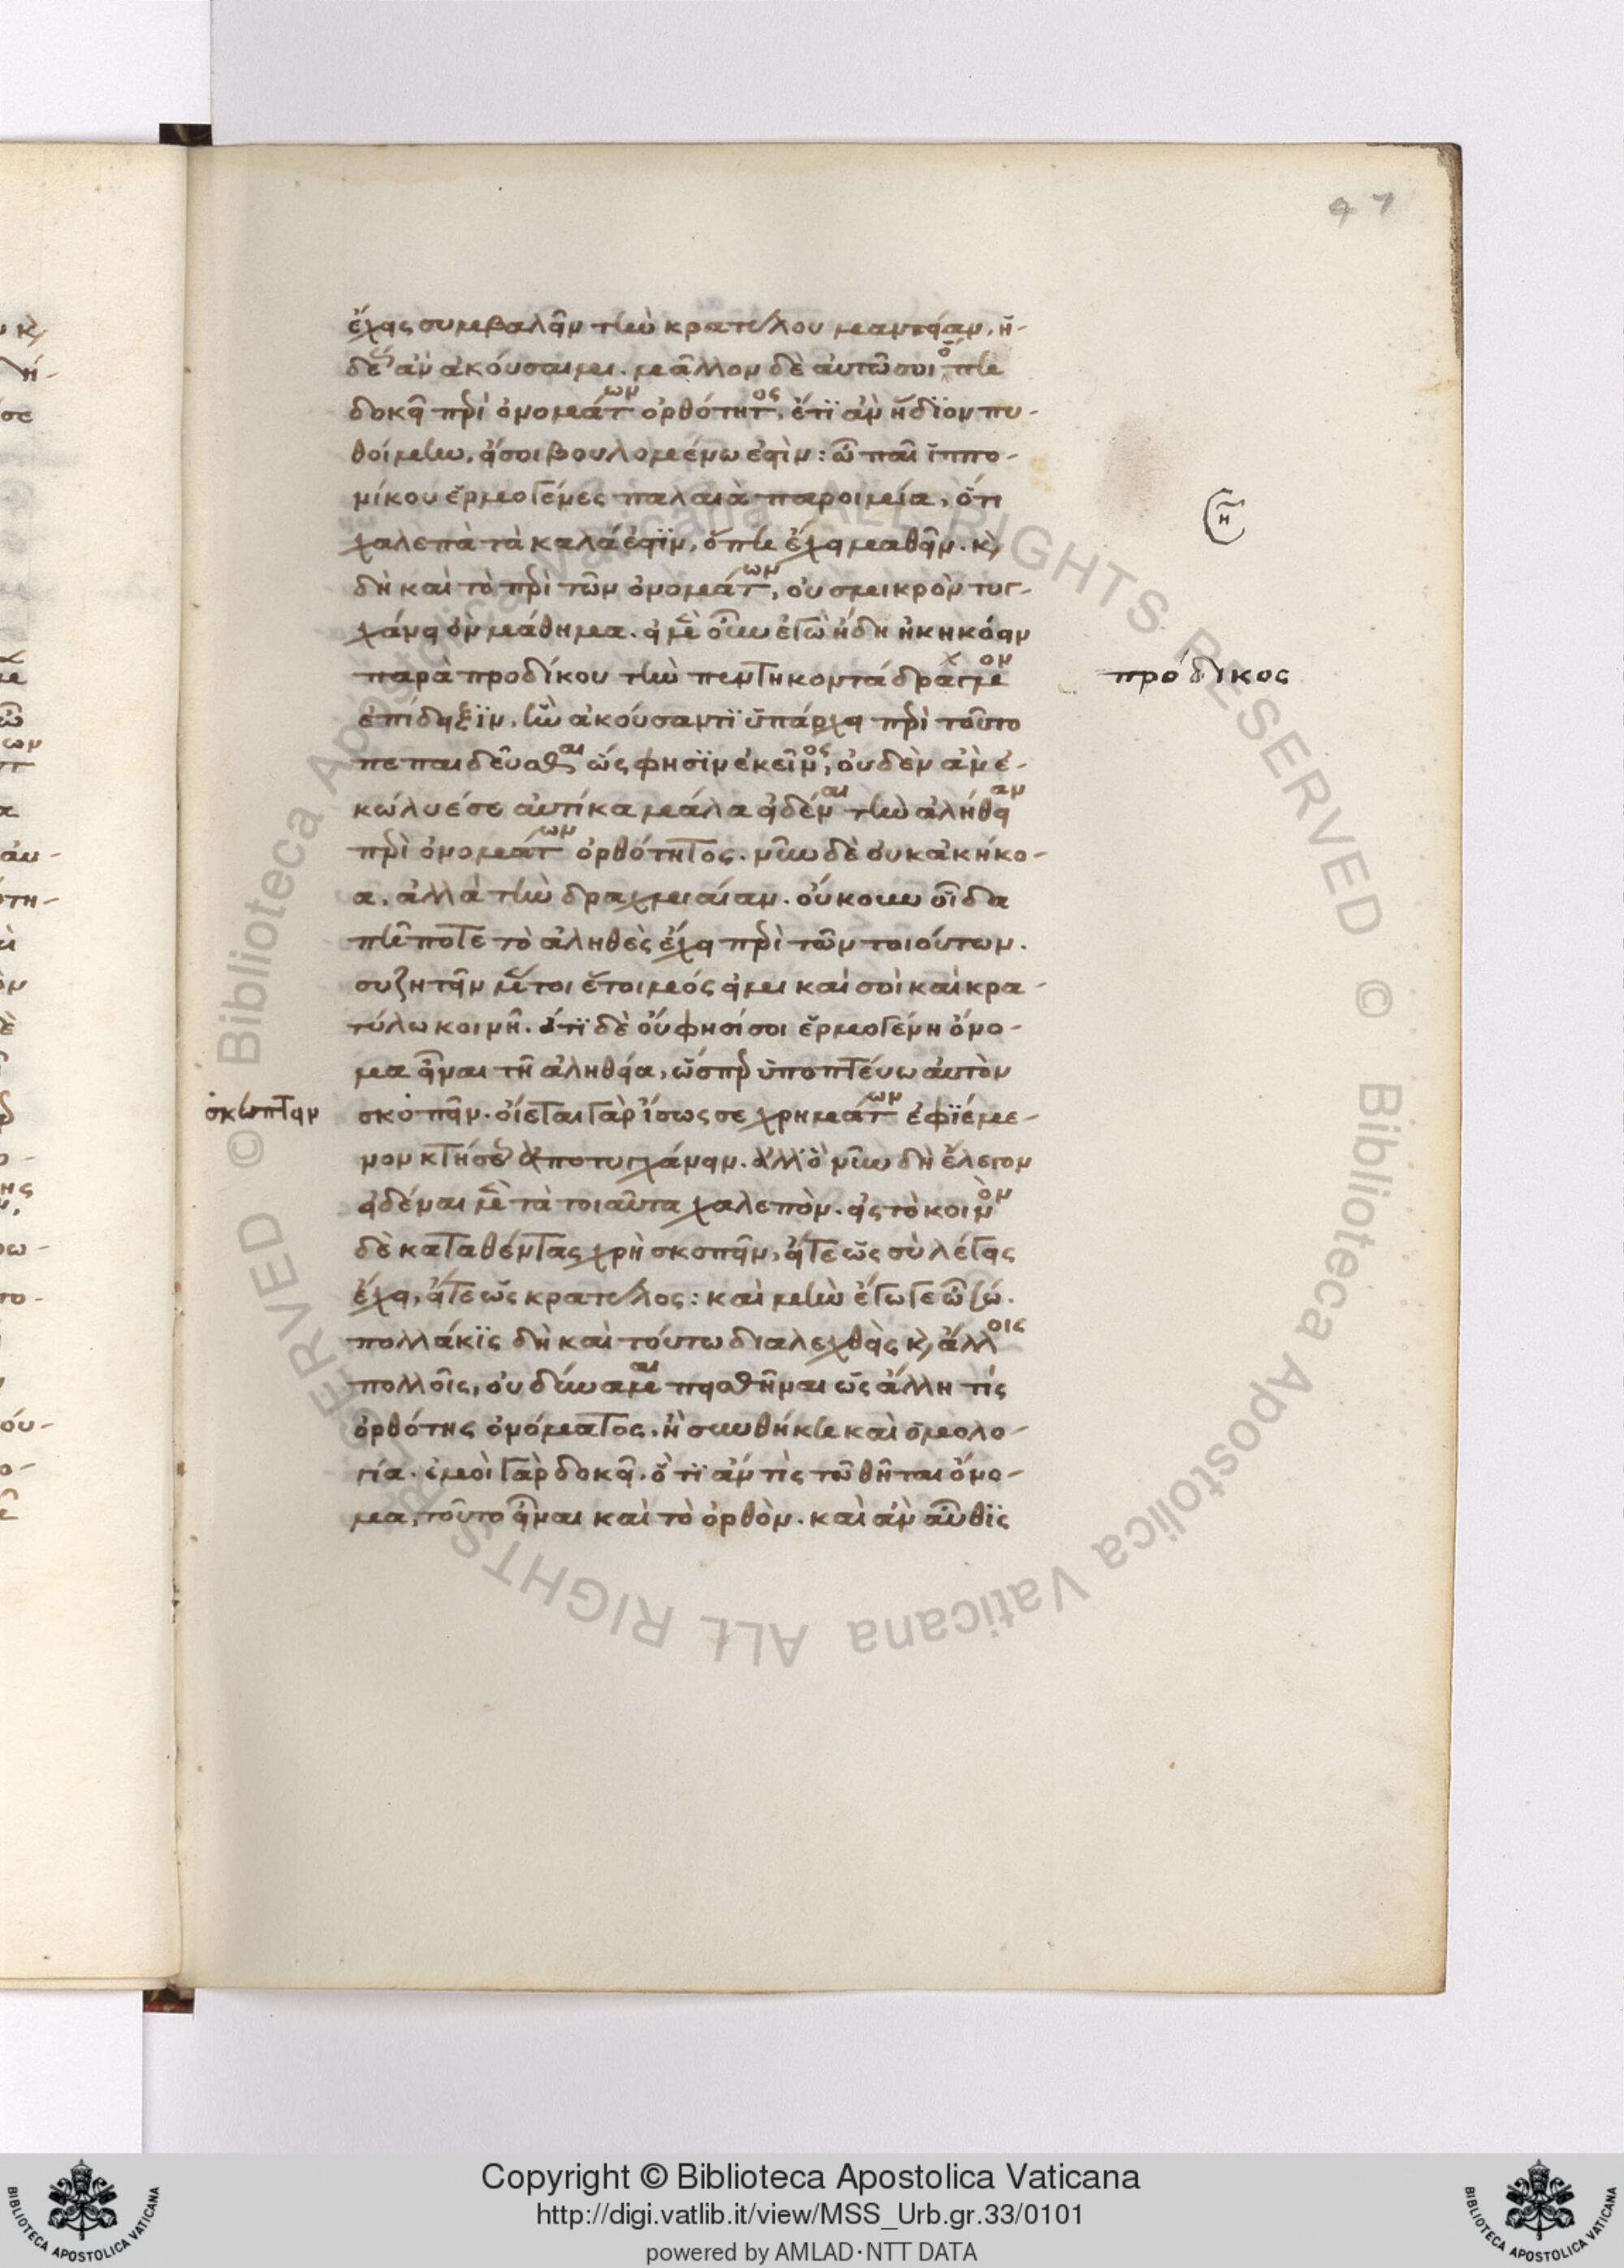 47
ἔχεις συμβαλεῖν τὴν κρατύλου μαντείαν, ἡ-
δέως ἂν ἀκούσαιμι. μᾶλλον δὲ αὐτῶ σοι ὅπη
δοκεῖ περὶ ὀνομάτων ὀρθότητος, ἔτι ἂν ἥδιον πυ-
θοίμην, εἴ σοι βουλομένω ἐστὶν: ὦ παῖ ἱππο-
νίκου ἑρμόγενες παλαιὰ παροιμία, ὅτι
χαλεπὰ τὰ καλά ἐστιν, ὅπη ἔχει μαθεῖν. καὶ
δὴ καὶ τὸ περὶ τῶν ὀνομάτων, οὐ σμικρὸν τυγ-
χάνει ὂν μάθημα. εἰ μὲν οὖν ἐγὼ ἤδη ἠκηκόειν
παρὰ προδίκου τὴν πεντηκοντάδραχμον
πρόδικος
ἐπίδειξιν, ἣν ἀκούσαντι ὑπάρχει περὶ τοῦτο
πεπαιδεῦσθαι ὥς φησιν ἐκεῖνος, οὐδὲν ἂν ἐ-
κώλυέ σε αὐτίκα μάλα εἰδέναι τὴν ἀλήθειαν
περὶ ὀνομάτων ὀρθότητος. νῦν δὲ οὐκ ἀκήκο-
α, ἀλλὰ τὴν δραχμιαίαν. οὔκουν οἶδα
πῆ ποτε τὸ ἀληθὲς ἔχει περὶ τῶν τοιούτων.
συζητεῖν μέντοι ἕτοιμός εἰμι καὶ σοὶ καὶ κρα-
τύλω κοινῆ. ὅτι δὲ οὔ φησί σοι ἑρμογένη ὄνο-
μα εἶναι τῆ ἀληθεία, ὥσπερ ὑποπτεύω αὐτὸν
σκώπτειν
σκοπεῖν. οἴεται γὰρ ἴσως σε χρημάτων ἐφιέμε-
νον κτήσεως ἀποτυγχάνειν. ἀλλ' ὃ νῦν δὴ ἔλεγον
εἰδέναι μὲν τὰ τοιαῦτα χαλεπὸν. εἰς τὸ κοινὸν
δὲ καταθέντας χρὴ σκοπεῖν, εἴτε ὡς σὺ λέγεις
ἔχει, εἴτε ὡς κρατύλος: καὶ μὴν ἔγωγε ὦ σώ.
πολλάκις δὴ καὶ τούτω διαλεχθεὶς καὶ ἄλλοις
πολλοῖς, οὐ δύναμαι πεισθῆναι ὡς ἄλλη τίς
ὀρθότης ὀνόματος, ἢ συνθήκη καὶ ὁμολο-
γία. ἐμοὶ γὰρ δοκεῖ, ὅ τι ἄν τις τῶ θῆται ὄνο-
μα, τοῦτο εἶναι καὶ τὸ ὀρθὸν. καὶ ἂν αὖθις
Copyright © Biblioteca Apostolica Vaticana
http://digi.vatlib.it/view/MSS_Urb.gr.33/0101
powered by AMLAD·NTT DATA
© Biblioteca Apostolica Vaticana ALL RIGHTS RESERVED
© Biblioteca Apostolica Vaticana ALL RIGHTS RESERVED
BIBLIOTECA APOSTOLICA VATICANA
BIBLIOTECA APOSTOLICA VATICANA